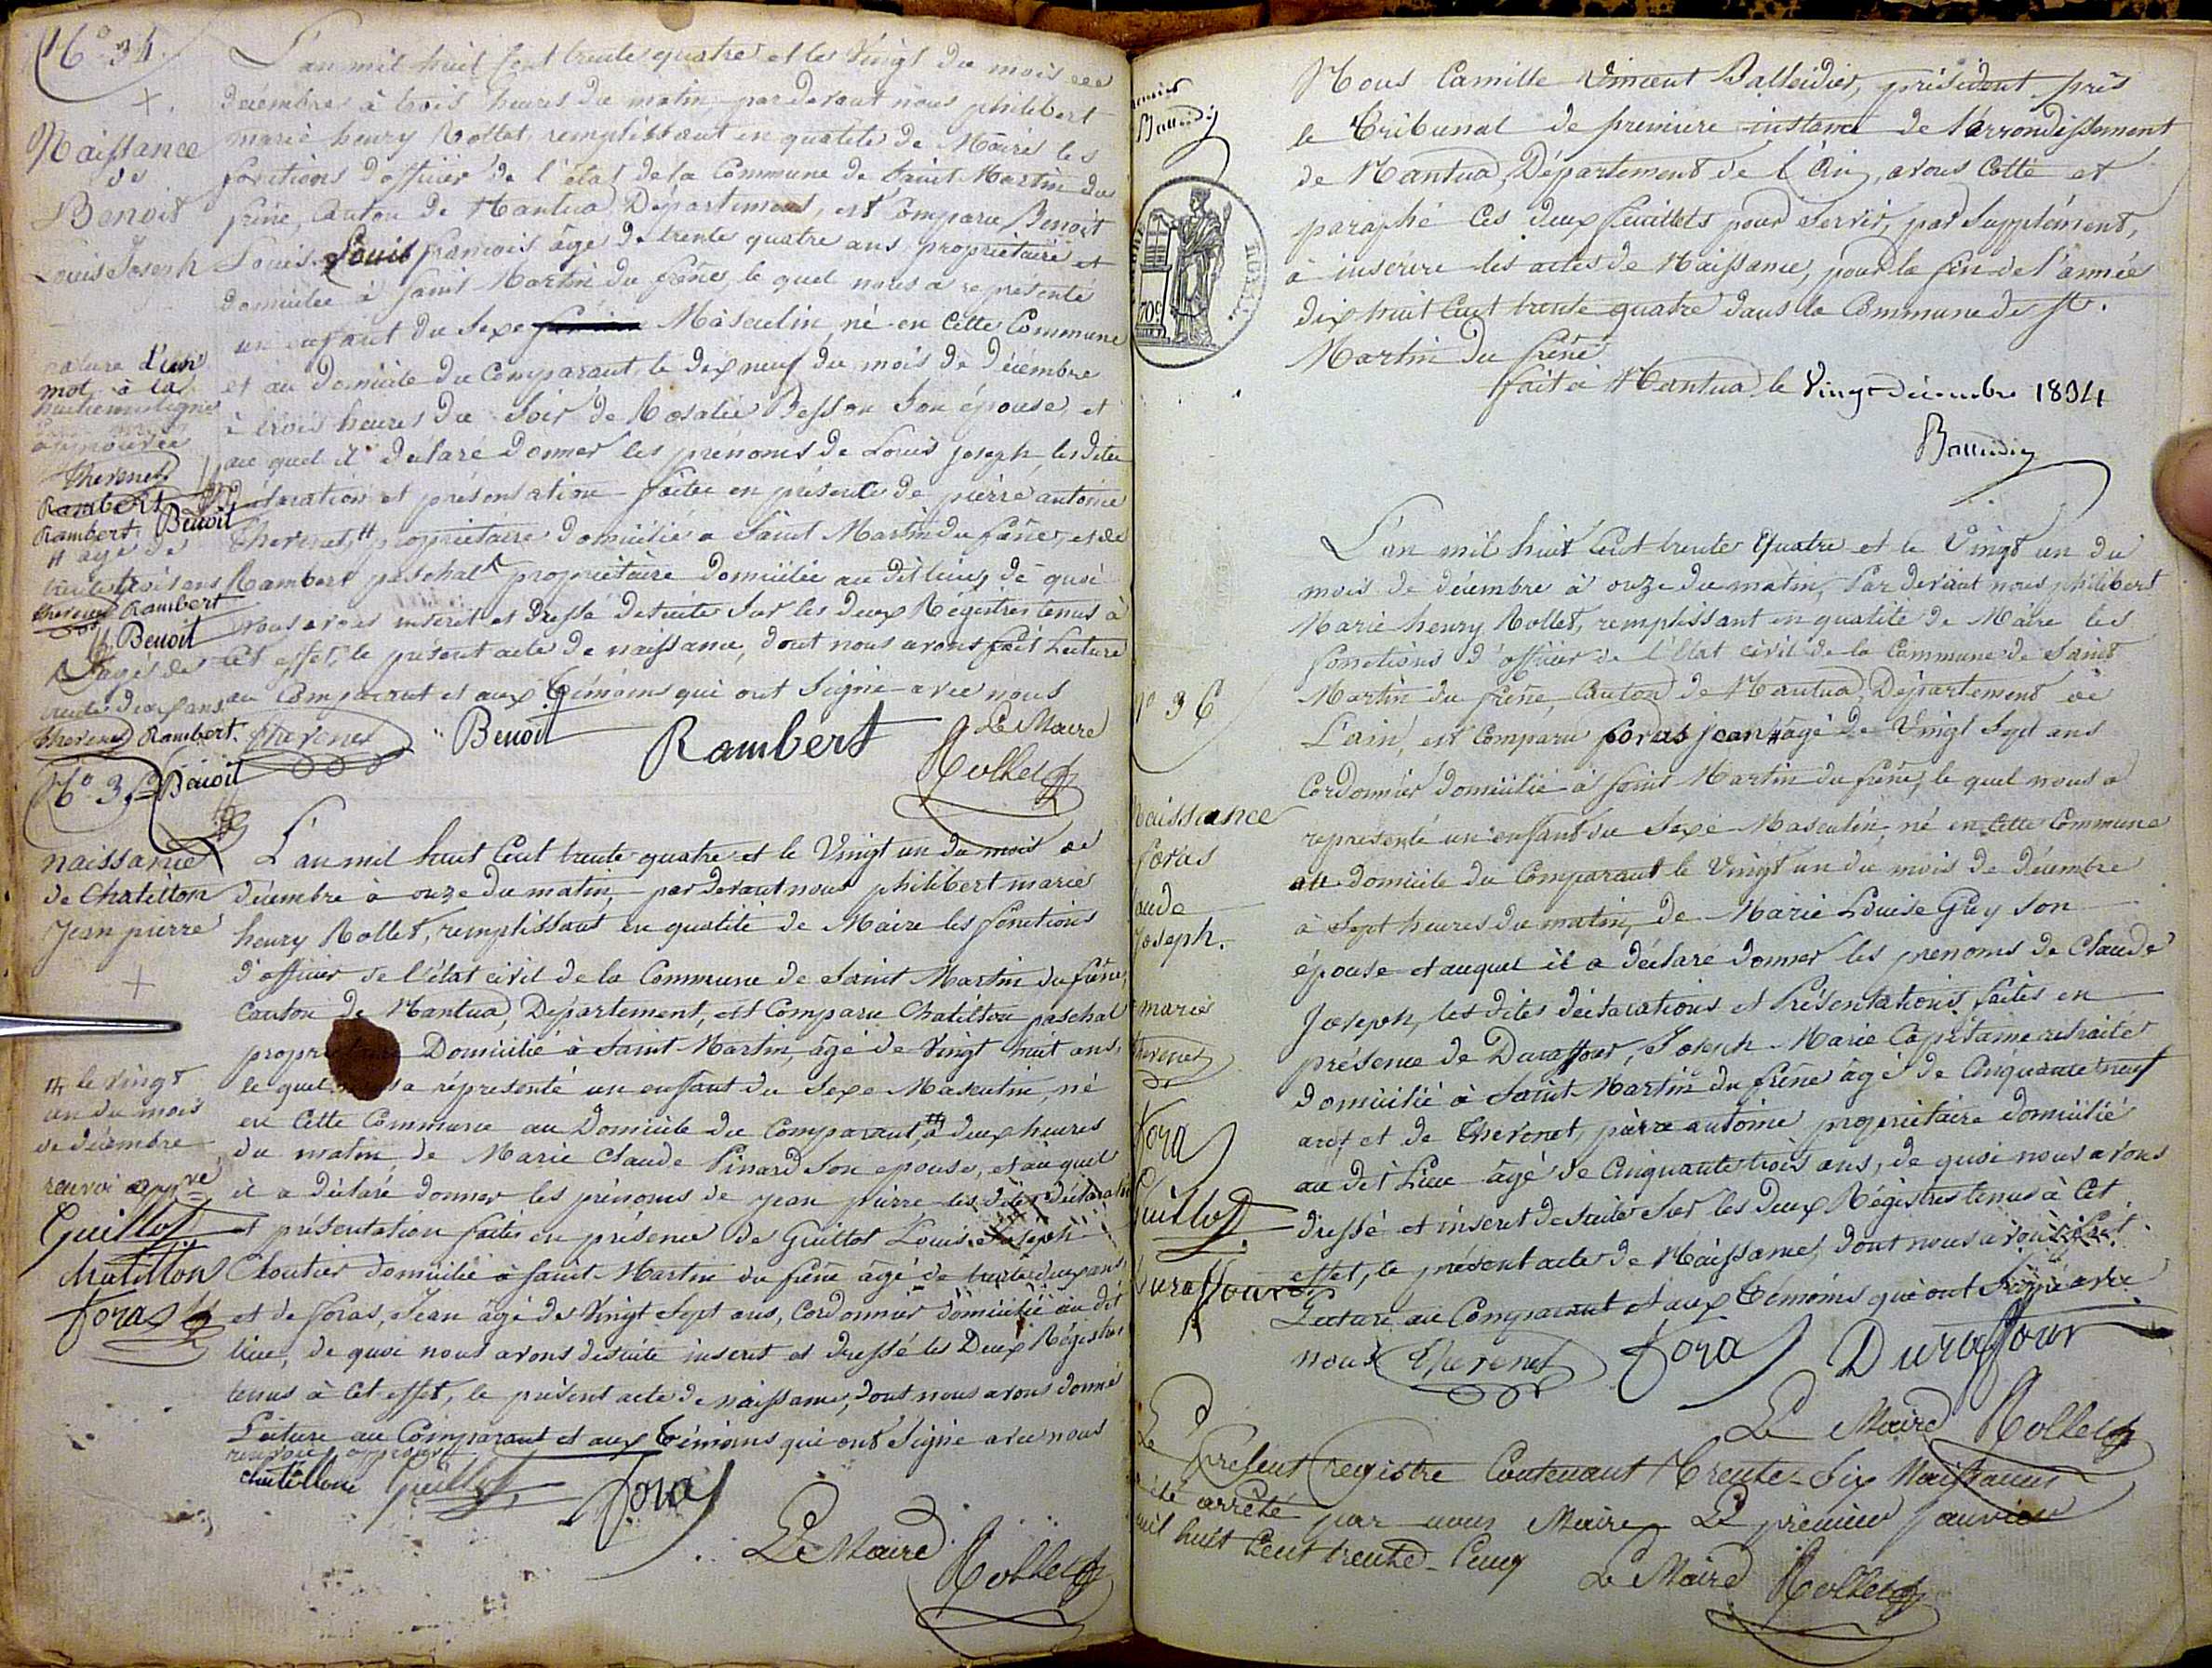 N° 34.
Naissance
de
Benoit
Louis Joseph
L'an mil huit Cent trente quatre et les Vingt du mois de
décembre à trois heures du matin, par devant nous philibert
marie henry Rollet, remplissant en qualité de Maire les
fonctions d'officier de l'état de la Commune de Saint Martin du
frêne, Canton de Nantua, Département, est Comparu Benoit
Louis Louis francois âgé de trente quatre ans propriétaire et
domicilié à Saint Martin du frêne, le quel nous a représenté
un enfant du Sexe Masculin, né en Cette Commune
et au Domicile du Comparant, le dix neuf du mois de Décembre
à trois heures du Soir de Rosalie Besson Son épouse, et
au quel il déclaré Donner les prénoms de Louis joseph, les dites
déclaration et présensation faites en présence de pierre antoine
thevenet, # propriétaire domicilié a Saint Martin du frêne, et de
Rambert paschal propriétaire domicilié au dit lieu, de quoi
nous avons inscrit et dressé desuite Sur les deux Régistres tenus à
Cet effet, le présent acte de naissance, dont nous avons fait Lecture
au Comparant et aux témoins qui ont Signé avec nous
rature d'un
mot à la
huitieme ligne
approuvée
thevenet
Rambert
Rambert Benoit
# agé de
trente trois ans
thevenet Rambert
Benoit
agés de
trente deux ans
thevenet Rambert.
Benoit
thevenet
Benoit
Rambert
Le Maire
Rollet
N° 35
naissance
de Chatillon
Jean pierre
L'an mil huit Cent trente quatre et le Vingt un du mois de
décembre à onze du matin, par devant nous philibert marie
henry Rollet, remplissant en qualité de Maire les fonctions
d'officier de l'état civil de la Commune de Saint Martin du frêne,
Canton de Nantua, Département, est Comparu Chatillon paschal
propriétaire Domicilié à Saint Martin, âgé de Vingt huit ans,
le quel nous a réprésenté un enffant du Sexe Masculin, né
en Cette Commune au Domicile du Comparant, # à deux heures
du matin de Marie Claude Pinard Son epouse, et au quel
il a déclaré donner les prénoms de jean pierre les dites Déclaration
et présentation faites en présence de Guillot Louis Joseph
Cloutier domicilié à Saint Martin du frêne âgé de trente deux ans,
et de foras, Jean âgé de Vingt Sept ans, Cordonnier domicilié au dit
lieu, de quoi nous avons desuite inscrit et dressé les Deux Régistres
tenus à Cet effet, le présent acte de naissance, dont nous avons donné
Lecture au Comparant et aux témoins qui ont Signé avec nous
# le Vingt
un du mois
de décembre
renvoi appvé
Guillot
chatillon
foras
renvoi approuvé
chatillon Guillot
foras
Le Maire
Rollet
Premier
Balleidier
Nous Camille Vincent Balleidier, président près
le Tribunal de première instance de l'arrondissement
de Nantua, Département de l'Ain, avons Cotté et
paraphé Ces deux feuillets pour Servir, par Supplément,
à inscrire les actes de Naissance, pour la fin de l'année
dix huit Cent trente quatre dans la Commune de St.
Martin du frêne
fait à Nantua le Vingt décembre 1834
Balleidier
709
N° 36
Naissance
foras
Claude
Joseph.
L'an mil huit Cent trente Quatre et le Vingt un du
mois de décembre à onze du matin, Par devant nous philibert
Marie henry Rollet, remplissant en qualité de Maire les
fonctions d'officier de l'État civil de la Commune de Saint
Martin du frêne, Canton de Nantua, Département de
L'ain, est Comparu foras jean # âgé de Vingt Sept ans
Cordonnier domicilié à Saint Martin du frêne, le quel nous a
représenté un enfant du Sexe Masculin, né en Cette Commune
au domicile du Comparant le Vingt un du mois de décembre
à Sept heures du matin, de Marie Louise Guy Son
épouse et auquel il a déclaré donner les prenoms de Claude
Joseph, les dites déclarations et Présentations faites en
présence de Duraffour, Joseph Marie Capitaine retraité
domicilié à Saint Martin du frêne âgé de Cinquante neuf
ans et de thevenet, pierre antoine propriétaire domicilié
au dit Lieu âgé de Cinquante trois ans, de quoi nous avons
dressé et inscrit desuite Sur les deux Régistres tenus à Cet
effet, le présent acte de Naissance, dont nous avons fait
Lecture au Comparant et aux témoins qui ont Signé avec
nous
marie
thevenet
foras
Guillot
Duraffour
Thevenet
foras
Duraffour
Le Maire Rollet
Le Présent registre Contenant trente-Six Naissances
a été arrêté par nous Maire Le premier janvier
mil huit Cent trente-Cinq
Le Maire Rollet